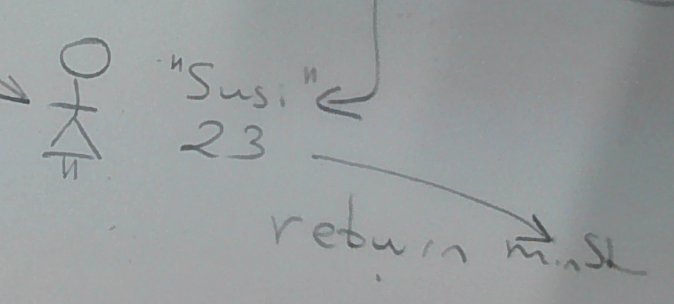 "Susi"
23
return